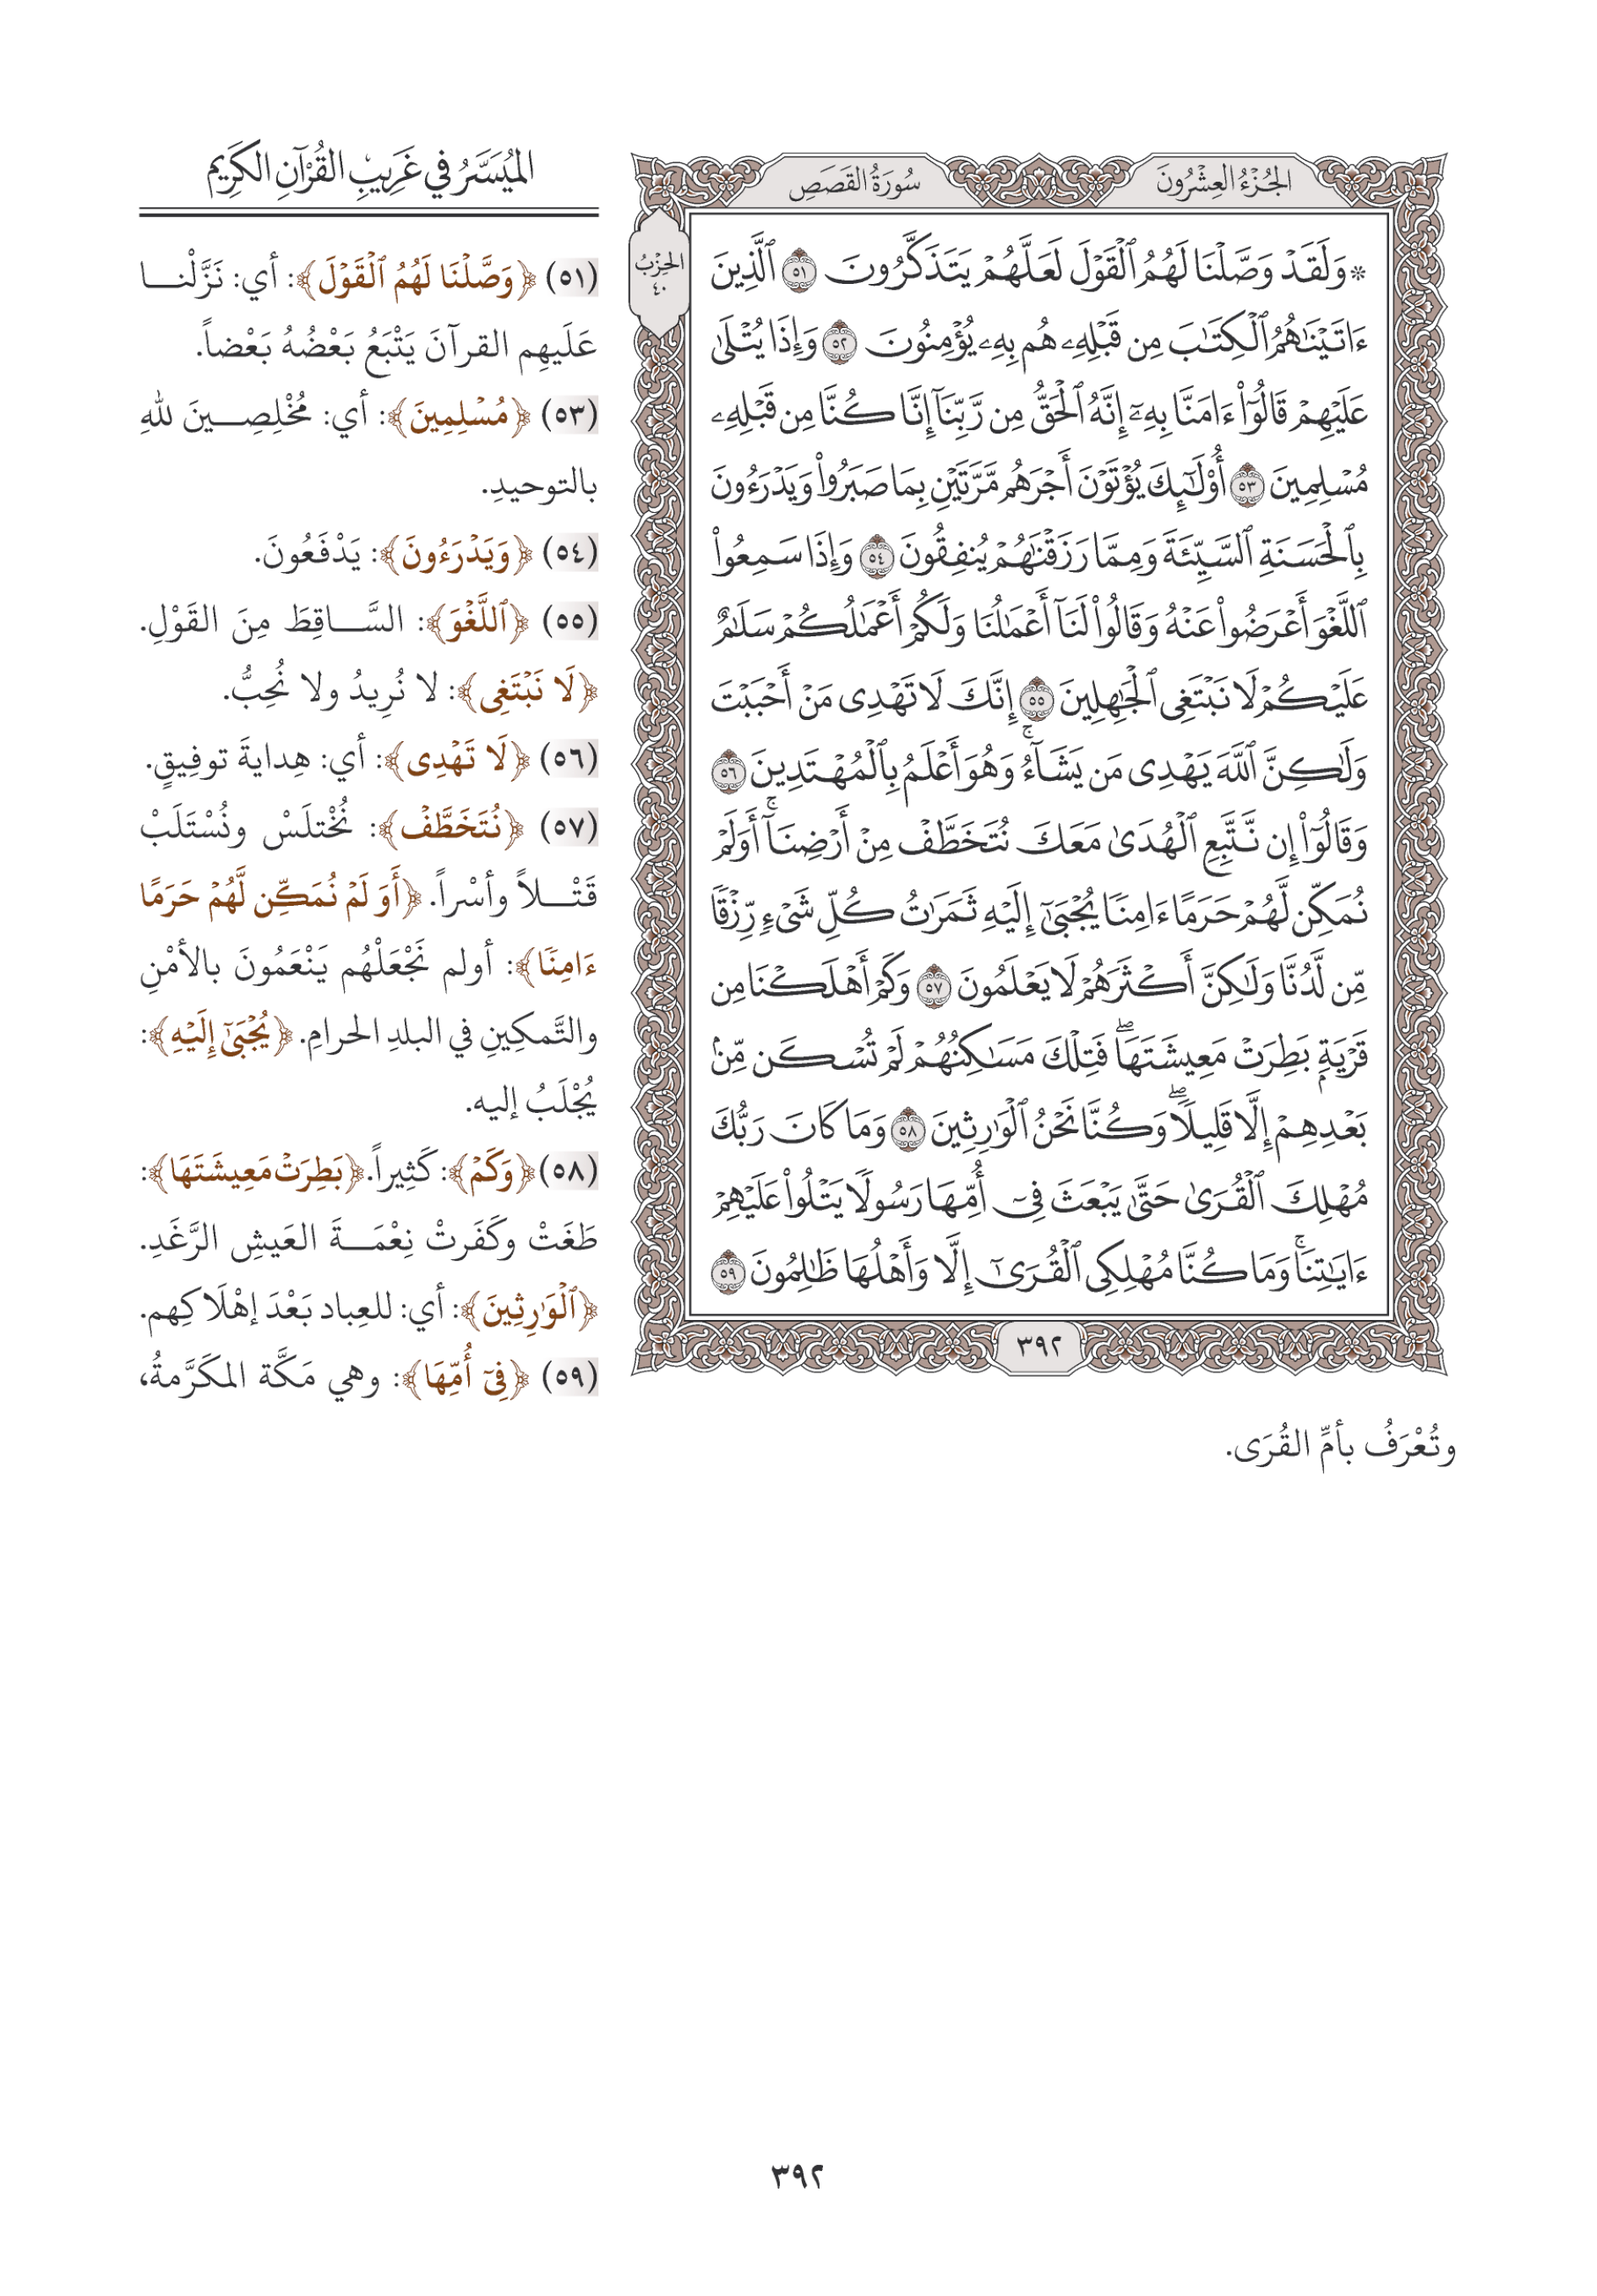 الجُزْءُ العِشْرُونَ
سُورَةُ القَصَصِ
الحِزْبُ
٤٠
۞ وَلَقَدْ وَصَّلْنَا لَهُمُ ٱلْقَوْلَ لَعَلَّهُمْ يَتَذَكَّرُونَ ٥١ ٱلَّذِينَ
ءَاتَيْنَٰهُمُ ٱلْكِتَٰبَ مِن قَبْلِهِۦ هُم بِهِۦ يُؤْمِنُونَ ٥٢ وَإِذَا يُتْلَىٰ
عَلَيْهِمْ قَالُوٓا۟ ءَامَنَّا بِهِۦٓ إِنَّهُ ٱلْحَقُّ مِن رَّبِّنَآ إِنَّا كُنَّا مِن قَبْلِهِۦ
مُسْلِمِينَ ٥٣ أُو۟لَٰٓئِكَ يُؤْتَوْنَ أَجْرَهُم مَّرَّتَيْنِ بِمَا صَبَرُوا۟ وَيَدْرَءُونَ
بِٱلْحَسَنَةِ ٱلسَّيِّئَةَ وَمِمَّا رَزَقْنَٰهُمْ يُنفِقُونَ ٥٤ وَإِذَا سَمِعُوا۟
ٱللَّغْوَ أَعْرَضُوا۟ عَنْهُ وَقَالُوا۟ لَنَآ أَعْمَٰلُنَا وَلَكُمْ أَعْمَٰلُكُمْ سَلَٰمٌ
عَلَيْكُمْ لَا نَبْتَغِى ٱلْجَٰهِلِينَ ٥٥ إِنَّكَ لَا تَهْدِى مَنْ أَحْبَبْتَ
وَلَٰكِنَّ ٱللَّهَ يَهْدِى مَن يَشَآءُ ۚ وَهُوَ أَعْلَمُ بِٱلْمُهْتَدِينَ ٥٦
وَقَالُوٓا۟ إِن نَّتَّبِعِ ٱلْهُدَىٰ مَعَكَ نُتَخَطَّفْ مِنْ أَرْضِنَآ ۚ أَوَلَمْ
نُمَكِّن لَّهُمْ حَرَمًا ءَامِنًا يُجْبَىٰٓ إِلَيْهِ ثَمَرَٰتُ كُلِّ شَىْءٍ رِّزْقًا
مِّن لَّدُنَّا وَلَٰكِنَّ أَكْثَرَهُمْ لَا يَعْلَمُونَ ٥٧ وَكَمْ أَهْلَكْنَا مِن
قَرْيَةٍۭ بَطِرَتْ مَعِيشَتَهَا ۖ فَتِلْكَ مَسَٰكِنُهُمْ لَمْ تُسْكَن مِّنۢ
بَعْدِهِمْ إِلَّا قَلِيلًا ۖ وَكُنَّا نَحْنُ ٱلْوَٰرِثِينَ ٥٨ وَمَا كَانَ رَبُّكَ
مُهْلِكَ ٱلْقُرَىٰ حَتَّىٰ يَبْعَثَ فِىٓ أُمِّهَا رَسُولًا يَتْلُوا۟ عَلَيْهِمْ
ءَايَٰتِنَا ۚ وَمَا كُنَّا مُهْلِكِى ٱلْقُرَىٰٓ إِلَّا وَأَهْلُهَا ظَٰلِمُونَ ٥٩
٣٩٢
المُيَسَّرُ في غَرِيبِ القُرْآنِ الكَرِيمِ
(٥١) ﴿وَصَّلْنَا لَهُمُ ٱلْقَوْلَ﴾: أي: نَزَّلْنا
عَلَيهِم القرآنَ يَتْبَعُ بَعْضُهُ بَعْضاً.
(٥٣) ﴿مُسْلِمِينَ﴾: أي: مُخْلِصِينَ للهِ
بالتوحيدِ.
(٥٤) ﴿وَيَدْرَءُونَ﴾: يَدْفَعُونَ.
(٥٥) ﴿ٱللَّغْوَ﴾: السَّاقِطَ مِنَ القَوْلِ.
﴿لَا نَبْتَغِى﴾: لا نُرِيدُ ولا نُحِبُّ.
(٥٦) ﴿لَا تَهْدِى﴾: أي: هِدايةَ توفِيقٍ.
(٥٧) ﴿نُتَخَطَّفْ﴾: نُخْتلَسْ ونُسْتَلَبْ
قَتْلاً وأسْراً. ﴿أَوَلَمْ نُمَكِّن لَّهُمْ حَرَمًا
ءَامِنًا﴾: أولم نَجْعَلْهُم يَنْعَمُونَ بالأمْنِ
والتَّمكِينِ في البلدِ الحرامِ. ﴿يُجْبَىٰٓ إِلَيْهِ﴾:
يُجْلَبُ إليه.
(٥٨) ﴿وَكَمْ﴾: كَثِيراً. ﴿بَطِرَتْ مَعِيشَتَهَا﴾:
طَغَتْ وكَفَرَتْ نِعْمَةَ العَيشِ الرَّغَدِ.
﴿ٱلْوَٰرِثِينَ﴾: أي: للعِباد بَعْدَ إهْلَاكِهم.
(٥٩) ﴿فِىٓ أُمِّهَا﴾: وهي مَكَّة المكَرَّمةُ،
وتُعْرَفُ بأمِّ القُرَى.
٣٩٢